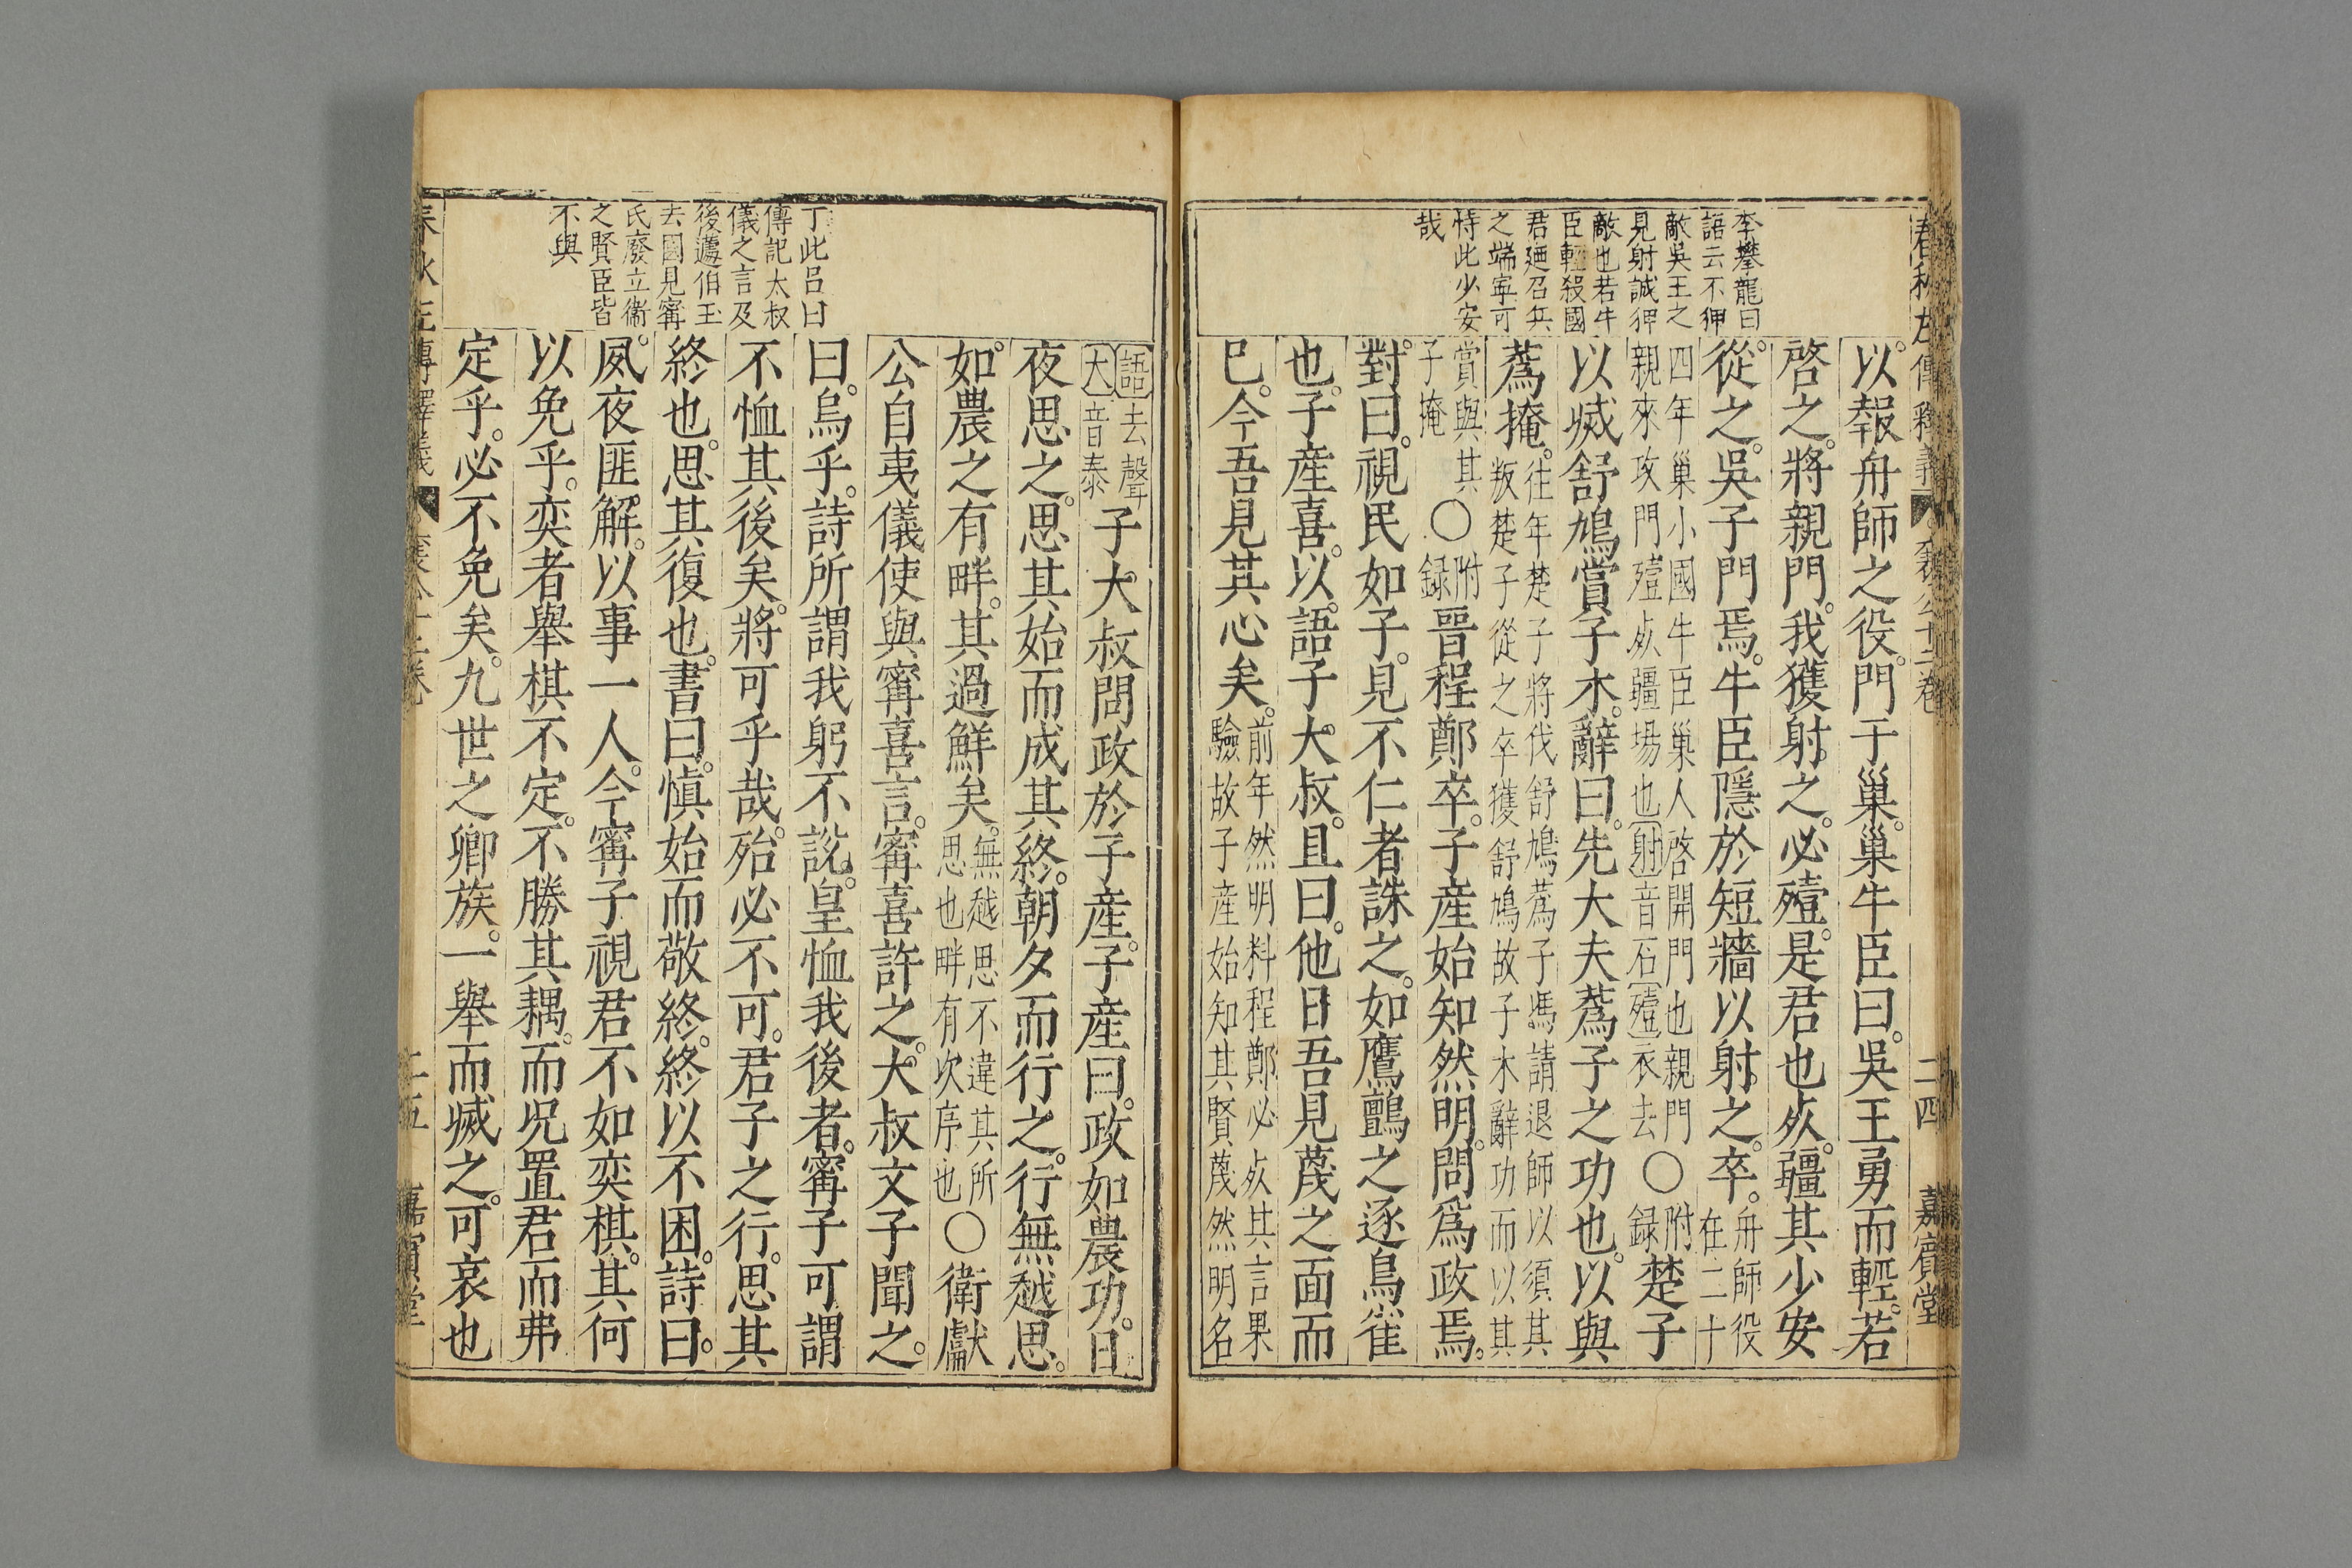 春秋左傳釋義 襄公十二卷 二四 嘉賓堂
李攀龍曰
語云不狎
敵吳王之
見射誠狎
敵也若牛
臣輕殺國
君廼召兵
之端寧可
恃此少安
哉
以報舟師之役。門于巢。巢牛臣曰。吳王勇而輕。若
啓之。將親門。我獲射之。必殪。是君也死。疆其少安
從之。吳子門焉。牛臣隱於短牆以射之。卒。舟師役在二十
四年巢小國牛臣巢人啓開門也親門親來攻門殪死疆場也射音石殪衣去〇附録楚子
以烕舒鳩賞子木。辭曰。先大夫蔿子之功也。以與
蔿掩。往年楚子將伐舒鳩蔿子馮請退師以須其叛楚子從之卒獲舒鳩故子木辭功而以其
賞與其子掩〇附録晉程鄭卒。子產始知然明。問爲政焉。
對曰。視民如子。見不仁者誅之。如鷹鸇之逐鳥雀
也。子產喜。以語子大叔。且曰。他日吾見蔑之面而
已。今吾見其心矣。前年然明料程鄭必死其言果驗故子產始知其賢蔑然明名
丁此呂曰
傳記太叔
儀之言及
後蘧伯玉
去國見甯
氏廢立衞
之賢臣皆
不與
語去聲大音泰子大叔問政於子產。子產曰。政如農功。日
夜思之。思其始而成其終。朝夕而行之。行無越思。
如農之有畔。其過鮮矣。無越思不違其所思也畔有次序也〇衛獻
公自夷儀使與甯喜言。甯喜許之。大叔文子聞之。
曰。烏乎。詩所謂我躬不說。皇恤我後者。甯子可謂
不恤其後矣。將可乎哉。殆必不可。君子之行。思其
終也。思其復也。書曰。愼始而敬終。終以不困。詩曰。
夙夜匪解。以事一人。今甯子視君不如奕棋。其何
以免乎。奕者舉棋不定。不勝其耦。而况置君而弗
定乎。必不免矣。九世之卿族。一舉而烕之。可哀也
春秋左傳釋義 二五 嘉賓堂